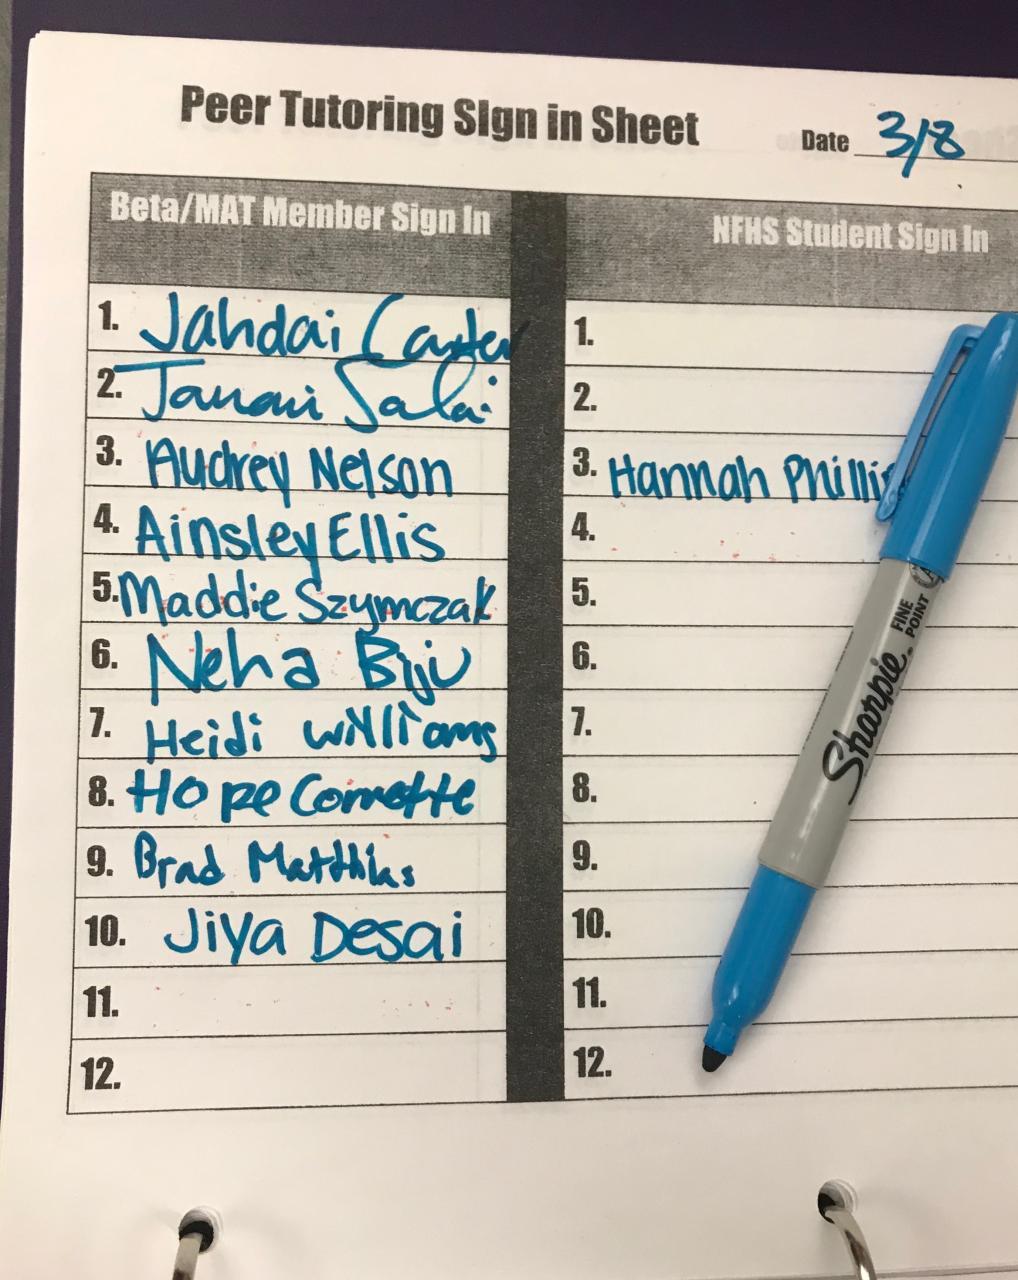 Peer Tutoring SIgn in Sheet
Date 3/8
Beta/MAT Member Sign In
NFHS Student Sign In
1. Jahdai Carter
1.
2. Janani Salai
2.
3. Audrey Nelson
3. Hannah Phillis
4. Ainsley Ellis
4.
5. Maddie Szymczak
5.
6. Neha Biju
6.
7. Heidi Williams
7.
8. Hope Cornette
8.
9. Brad Matthias
9.
10. Jiya Desai
10.
11.
11.
12.
12.
Sharpie.
FINE
POINT